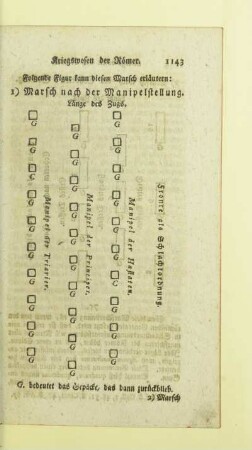 Kriegswesen der Römer. 1143
Folgende Figur kann diesen Marsch erläutern:
1) Marsch nach der Manipelstellung.
Länge des Zugs.
G G G
G G G
G G G
C G G
G G G
G G G
G G C
G G G
G G G
G G G
Manipel der Triarier.
Manipel der Principer.
Manipel der Hastaten.
Fronte als Schlachtordnung.
G. bedeutet das Gepäcke, das dann zurückblieb.
2) Marsch